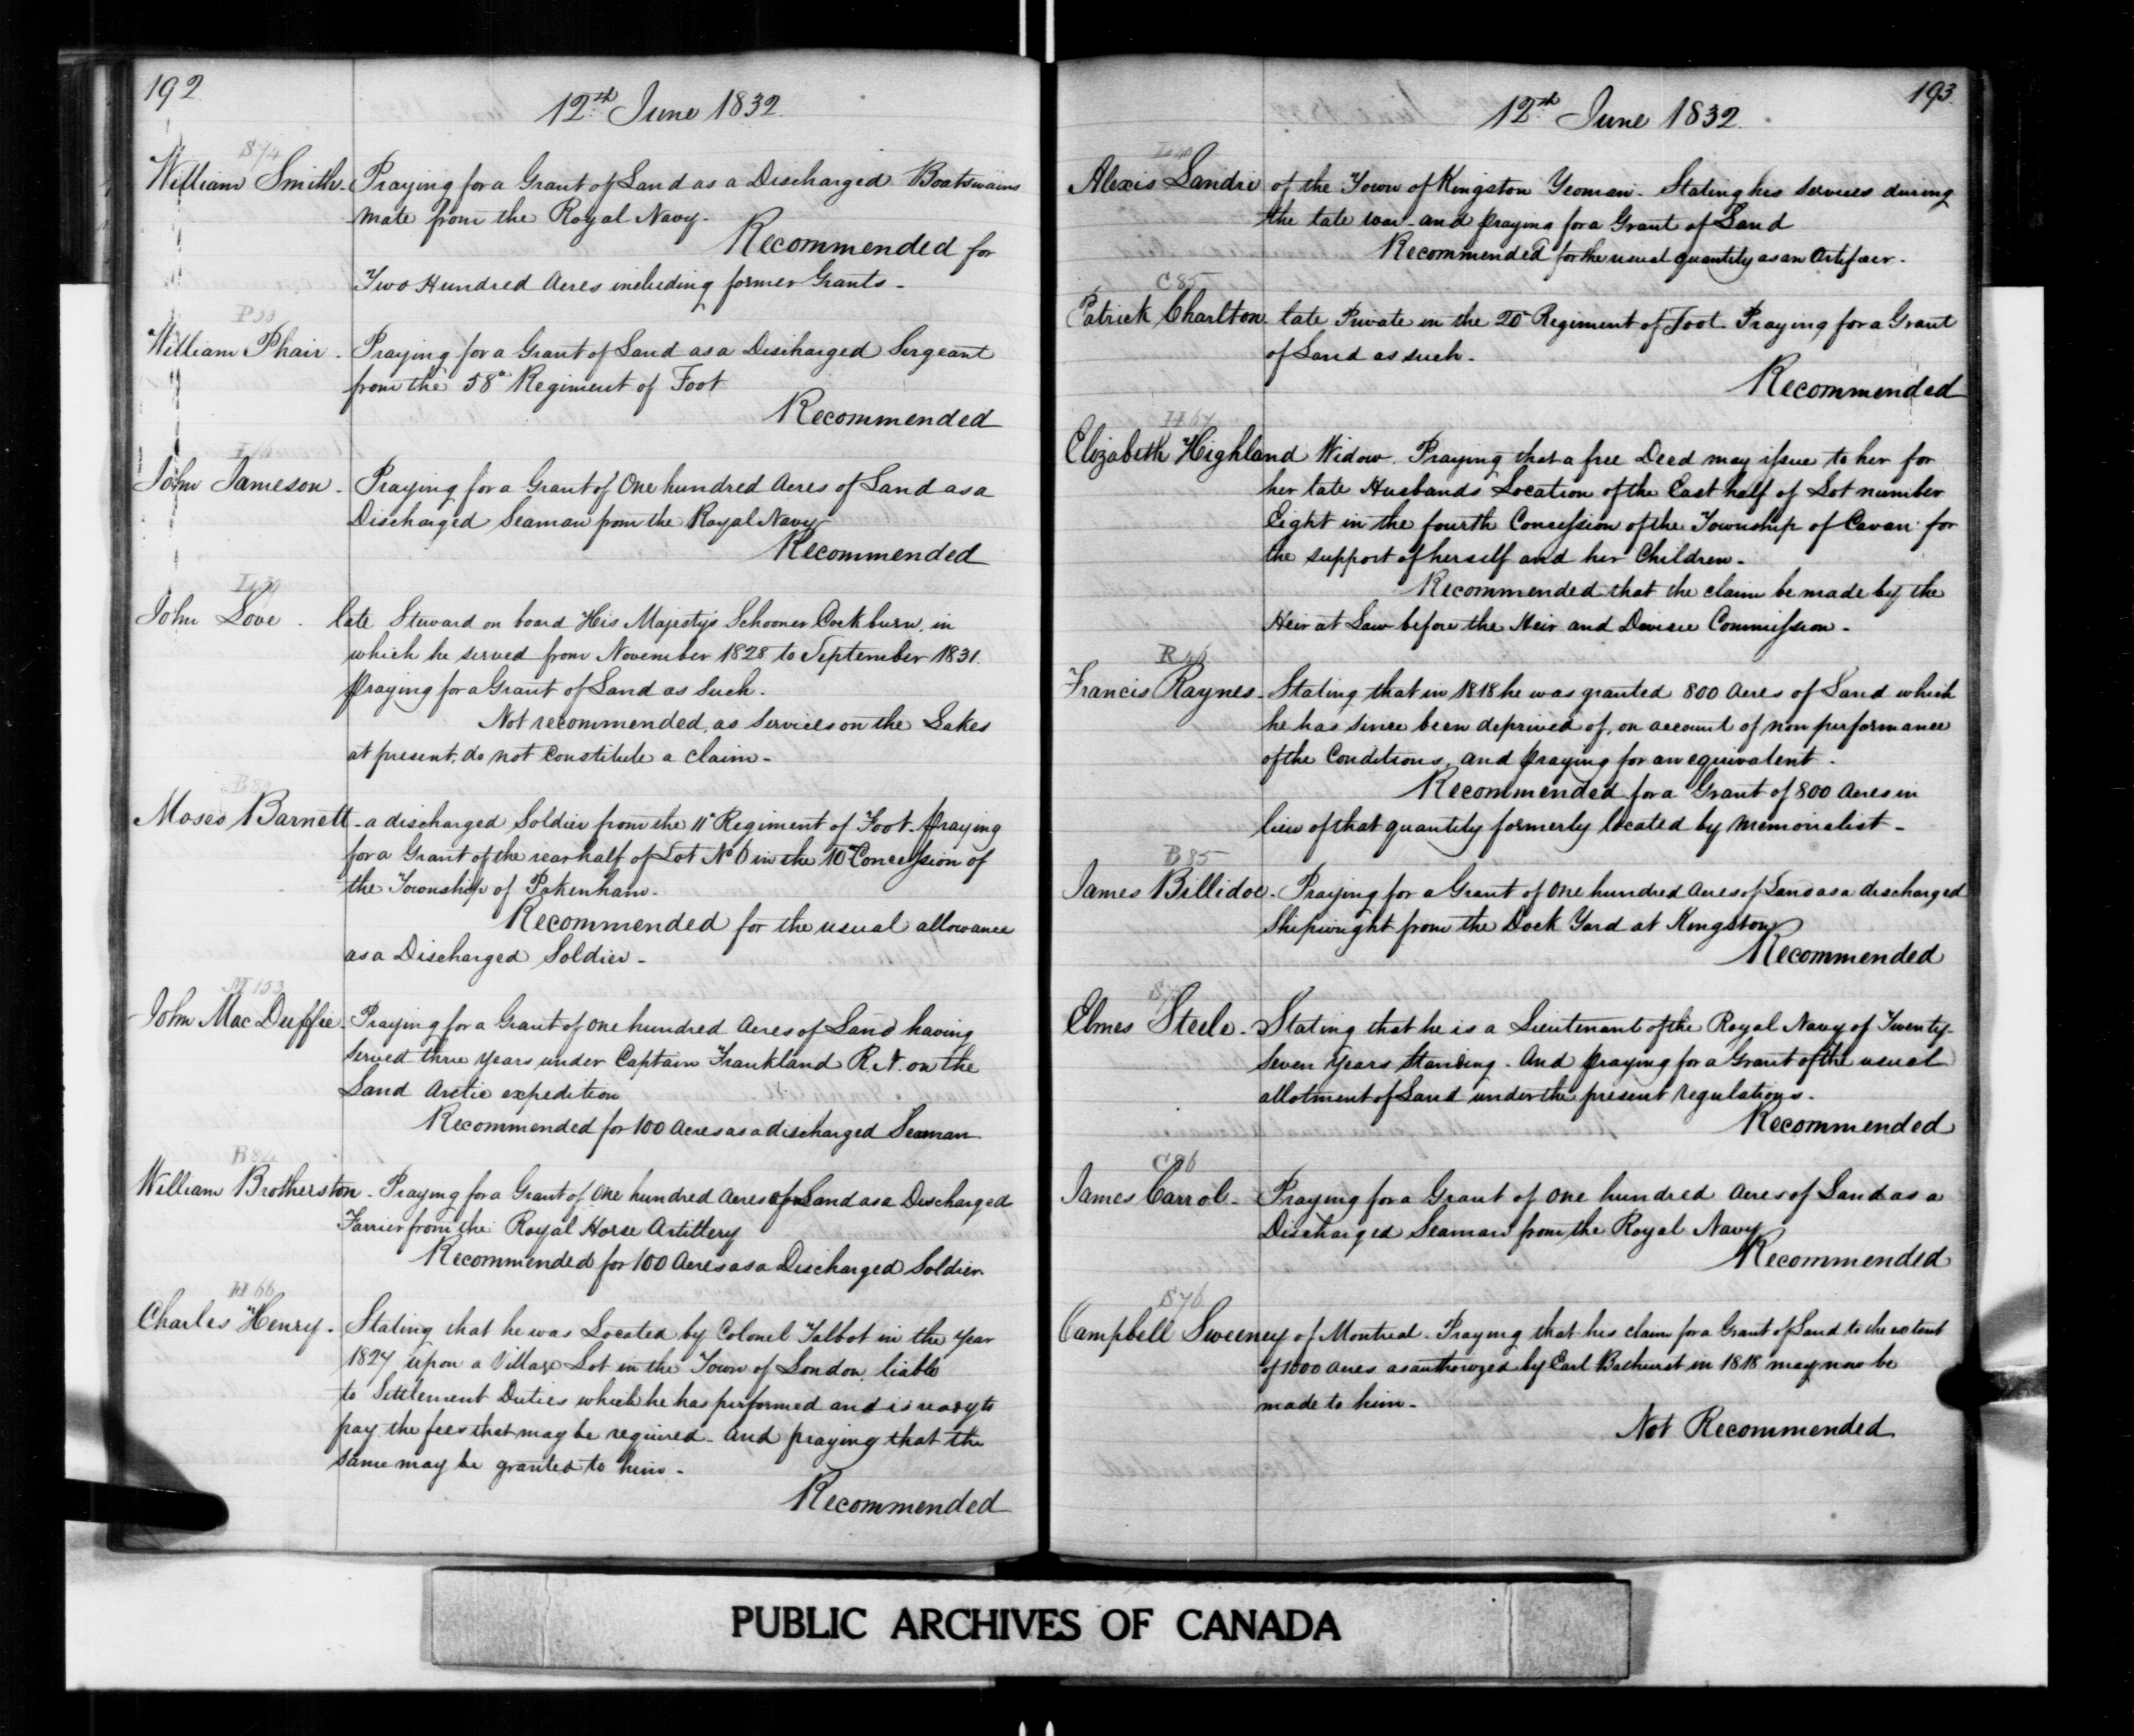 192
12th June 1832
S 74
William Smith. Praying for a Grant of Land as a Discharged Boatswains
mate from the Royal Navy.
Recommended for
Two Hundred Acres including former Grants.
William Phair. Praying for a Grant of Land as a Discharged Sergeant
from the 58th Regiment of Foot
Recommended
John Jameson. Praying for a Grant of One hundred Acres of Land as a
Discharged Seaman from the Royal Navy
Recommended
John Love. late Steward on board His Majestys Schooner Cockburn, in
which he served from November 1828 to September 1831.
praying for a Grant of Land as Such.
Not recommended, as Services on the Lakes
at present, do not Constitute a Claim.
Moses Barnett - a discharged Soldier from the 11th Regiment of Foot. praying
for a Grant of the rear half of Lot No 6 in the 10th Concession of
the Township of Pakenham.
Recommended for the usual allowance
as a Discharged Soldier.
M 153
John Mac Duffie. Praying for a Grant of One hundred Acres of Land having
Served three years under Captain Frankland R.N. on the
Land Arctic expedition
Recommended for 100 Acres as a discharged Seaman.
B 84
William Brotherston. Praying for a Grant of One hundred Acres of Land as a Discharged
Farrier from the Royal Horse Artillery
Recommended for 100 Acres as a Discharged Soldier.
H 66
Charles Henry. Stating that he was Located by Colonel Talbot in the Year
1827 upon a Village Lot in the Town of London, liable
to Settlement Duties which he has performed and is ready to
pay the fees that may be required. And praying that the
Same may be granted to him.
Recommended
193.
12th June 1832.
Alexis Landri of the Town of Kingston Yeoman. Stating his Services during
the late war and praying for a Grant of Land
Recommended for the usual quantity as an Artificer.
C 85
Patrick Charlton. late Private in the 20th Regiment of Foot. Praying for a Grant
of Land as such.
Recommended
H 67
Elizabeth Highland Widow. Praying that a free Deed may issue to her for
her late Husbands Location of the East half of Lot number
Eight in the fourth Concession of the Township of Cavan for
the support of herself and her Children.
Recommended that the claim be made by the
Heir at Law before the Heir and Devisee Commission.
R 46
Francis Raynes. Stating that in 1818 he was granted 800 Acres of Land which
he has since been deprived of, on account of non performance
of the Conditions, and praying for an equivalent.
Recommended for a Grant of 800 Acres in
lieu of that quantity formerly located by Memorialist.
B 85
James Billidoe. Praying for a Grant of One hundred Acres of Land as a discharged
Shipwright from the Dock Yard at Kingston
Recommended
Elmes Steele. Stating that he is a Lieutenant of the Royal Navy of Twenty
Seven Years Standing. And praying for a Grant of the usual
allotment of Land under the present regulations.
Recommended
C 86
James Carrol. Praying for a Grant of One hundred Acres of Land as a
Discharged Seaman from the Royal Navy
Recommended
S 76
Campbell Sweeney of Montreal. Praying that his claim for a Grant of Land to the extent
of 1000 Acres as authorized by Earl Bathurst in 1818 may now be
made to him.
Not Recommended
PUBLIC ARCHIVES OF CANADA